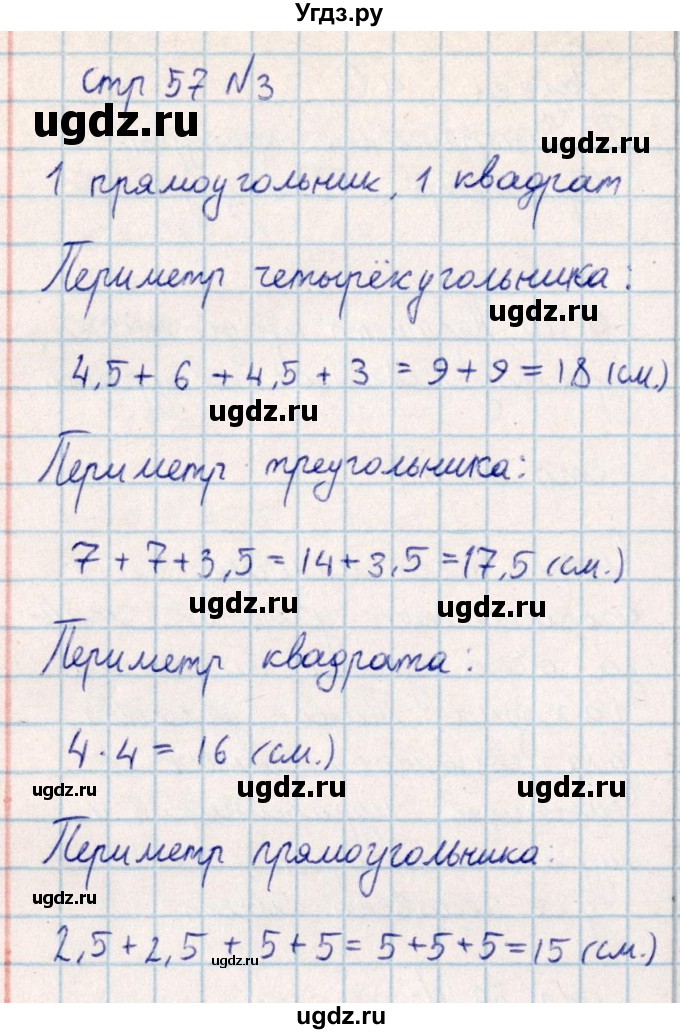 Угдз.ру
стр 57 №3
ugdz.ru
ugdz.ru
1 прямоугольник, 1 квадрат
Периметр четырёхугольника:
ugdz.ru
4,5 + 6 + 4,5 + 3 = 9 + 9 = 18 (см.)
ugdz.ru
Периметр треугольника:
7 + 7 + 3,5 = 14 + 3,5 = 17,5 (см.)
ugdz.ru
ugdz.ru
Периметр квадрата:
4 · 4 = 16 (см.)
ugdz.ru
ugdz.ru
ugdz.ru
Периметр прямоугольника:
ugdz.ru
2,5 + 2,5 + 5 + 5 = 5 + 5 + 5 = 15 (см.)
ugdz.ru
ugdz.ru